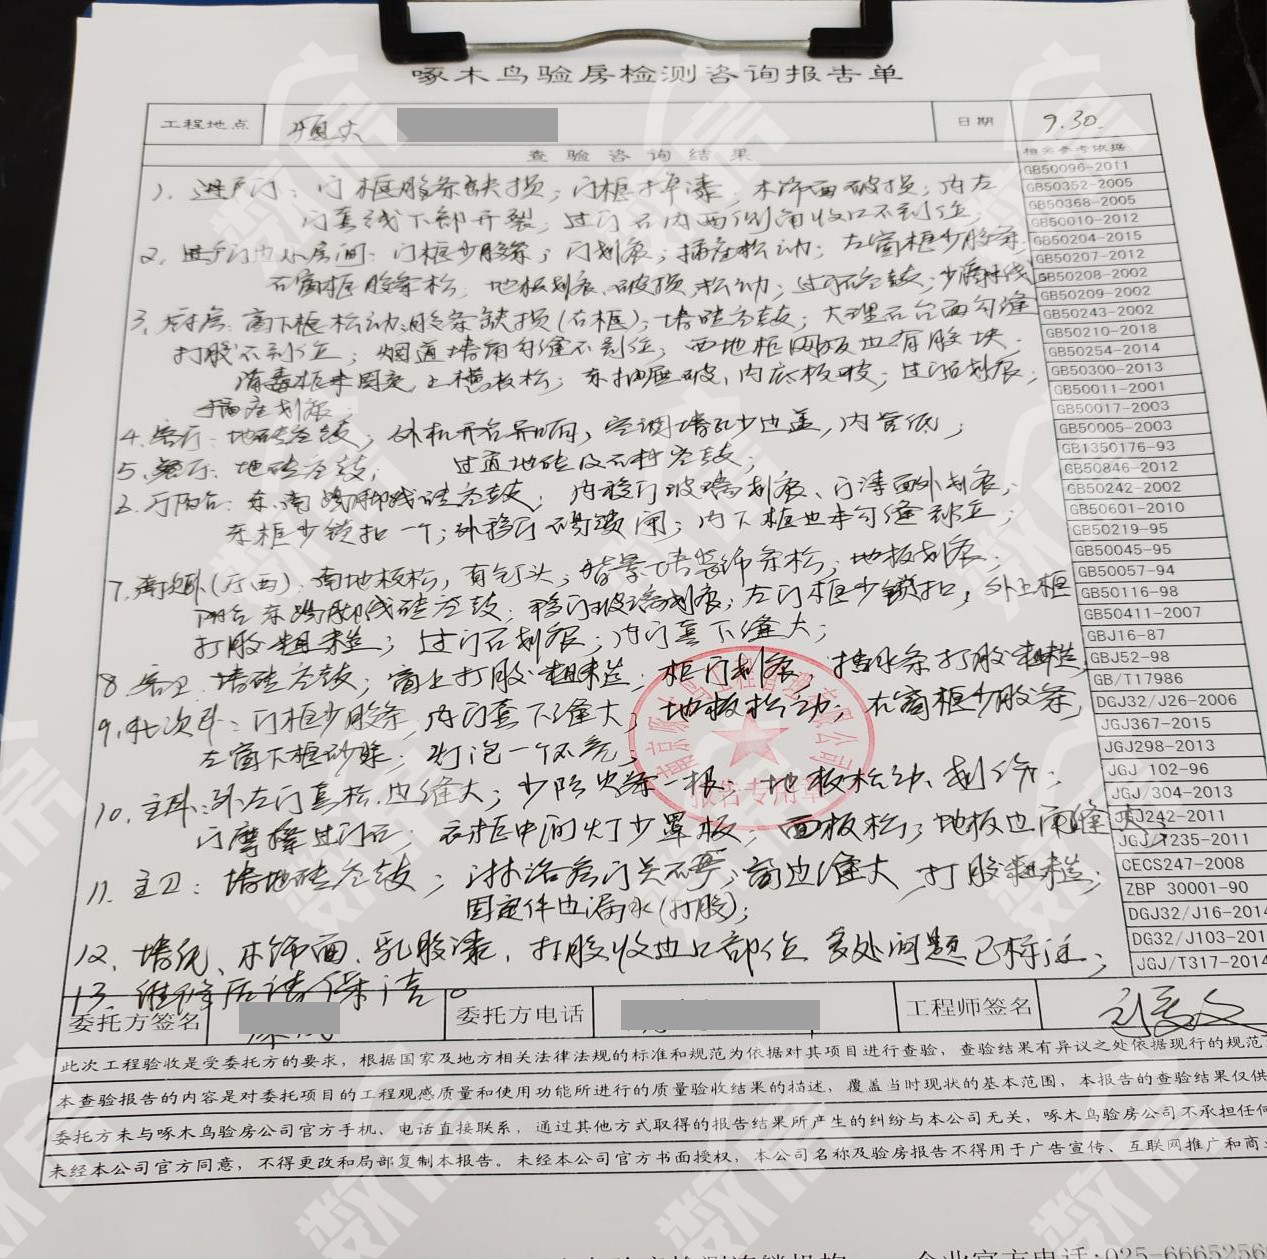 啄木鸟验房检测咨询报告单
工程地点
日期 9.30.
查验咨询结果
相关参考依据
1、进户门：门框胶条缺损；门框掉漆；木饰面破损；内左
门套线下部开裂；过门石内两侧角收口不到位；
2、进户门边小房间：门框少胶条；门划痕；插座松动；左窗框少胶条
右窗框胶条松；地板划痕、破损、松动；过门石空鼓；
3、厨房：窗下框松动、胶条缺损（右框）；墙砖空鼓；大理石台面勾缝
打胶不到位；烟道墙角勾缝不到位；西地柜网板边有胶块；
消毒柜未固定、上横板松；东抽屉破、内底板破；过门石划痕；
插座划痕；
4、客厅：地砖空鼓；外机开启异响；空调墙孔少边盖，内管低；
5、餐厅：地砖空鼓； 过道地砖及石材空鼓；
厅阳台：东、南踢脚线砖空鼓；内移门玻璃划痕、门漆面外划痕；
东框少锁扣一个；外移门不易锁闭；内下框边未勾缝到位；
7、（厅西）：南地板松，有钉头；背景墙装饰条松；地板划痕；
阳台东踢脚线砖空鼓；移门玻璃划痕；左门框少锁扣；外上框
打胶粗糙；过门石划痕；内门套下缝大；
8、客卫：墙砖空鼓；窗上打胶粗糙；柜门划痕；挡水条打胶粗糙；
9、北次卧：门框少胶条，内门套下缝大；地板松动；右窗框少胶条；
左窗下框砂浆；灯泡一个不亮；
10、主卧：外左门套松、边缝大；少防火条一根；地板松动、划伤；
门摩擦过门石；衣柜中间灯少罩板；面板松；地板边角缝大；
11、主卫：墙地砖空鼓；淋浴房门关不严；窗边缝大、打胶粗糙；
固定件边漏水（打胶）；
12、墙纸、木饰面、乳胶漆、打胶收边口部位多处问题已标注；
13、维修后请保洁。
GB50096-2011
GB50352-2005
GB50368-2005
GB50010-2012
GB50204-2015
GB50207-2012
GB50208-2002
GB50209-2002
GB50243-2002
GB50210-2018
GB50254-2014
GB50300-2013
GB50011-2001
GB50017-2003
GB50005-2003
GB1350176-93
GB50846-2012
GB50242-2002
GB50601-2010
GB50219-95
GB50045-95
GB50057-94
GB50116-98
GB50411-2007
GBJ16-87
GBJ52-98
GB/T17986
DGJ32/J26-2006
JGJ367-2015
JGJ298-2013
JGJ 102-96
JGJ/304-2013
JGJ242-2011
JGJ/T235-2011
CECS247-2008
ZBP 30001-90
DGJ32/J16-2014
DG32/J103-201
JGJ/T317-2014
报告专用章
委托方签名 委托方电话 工程师签名
此次工程验收是受委托方的要求，根据国家及地方相关法律法规的标准和规范为依据对其项目进行查验，查验结果有异议之处依据现行的规范
本查验报告的内容是对委托项目的工程观感质量和使用功能所进行的质量验收结果的描述，覆盖当时现状的基本范围，本报告的查验结果仅供
委托方未与啄木鸟验房公司官方手机、电话直接联系，通过其他方式取得的报告结果所产生的纠纷与本公司无关，啄木鸟验房公司不承担任何
未经本公司官方同意，不得更改和局部复制本报告。未经本公司官方书面授权，本公司名称及验房报告不得用于广告宣传、互联网推广和商